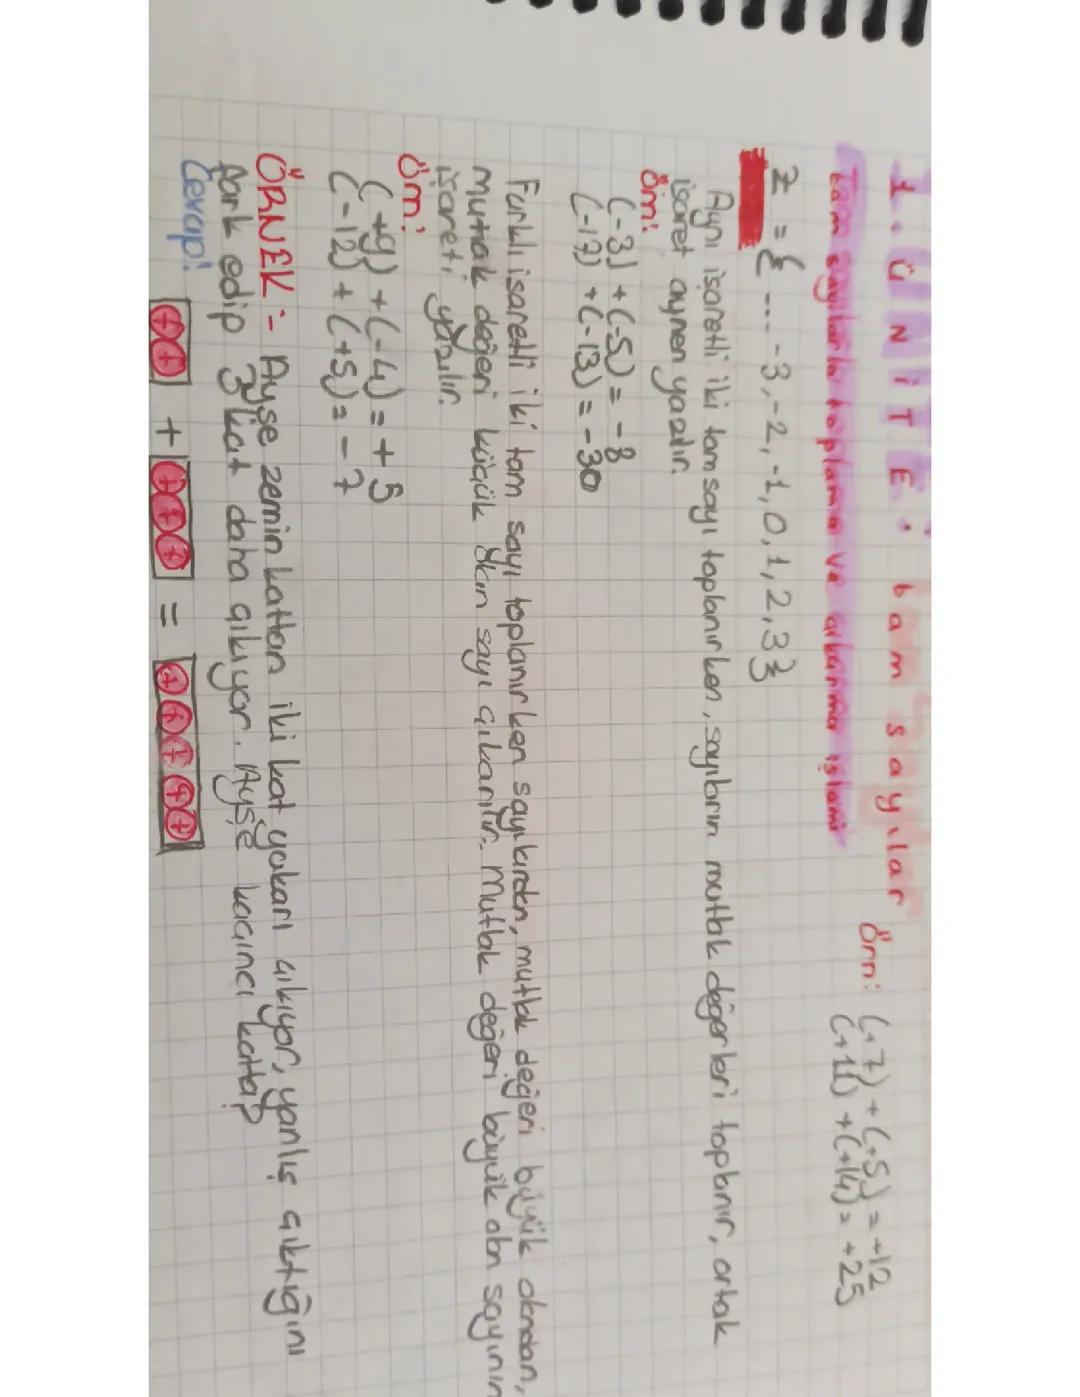 1. ÜNİTE: tam sayılar
Tam sayılarla toplama ve çıkarma işlemi
Örn: (+7) + (+5) = +12
(+11) + (+14) = +25
Z = {... -3, -2, -1, 0, 1, 2, 3}
Aynı işaretli iki tam sayı toplanırken, sayıların mutlak değerleri toplanır, ortak
işaret aynen yazılır.
Örn:
(-3) + (-5) = -8
(-17) + (-13) = -30
Farklı işaretli iki tam sayı toplanırken sayılardan, mutlak değeri büyük olandan,
mutlak değeri küçük olan sayı çıkarılır. Mutlak değeri büyük olan sayının
işareti yazılır.
Örn:
(+9) + (-4) = +5
(-12) + (+5) = -7
ÖRNEK :- Ayşe zemin kattan iki kat yukarı çıkıyor, yanlış çıktığını
fark edip 3 kat daha çıkıyor. Ayşe kaçıncı katta?
Cevap:
++ + +++ = +++++